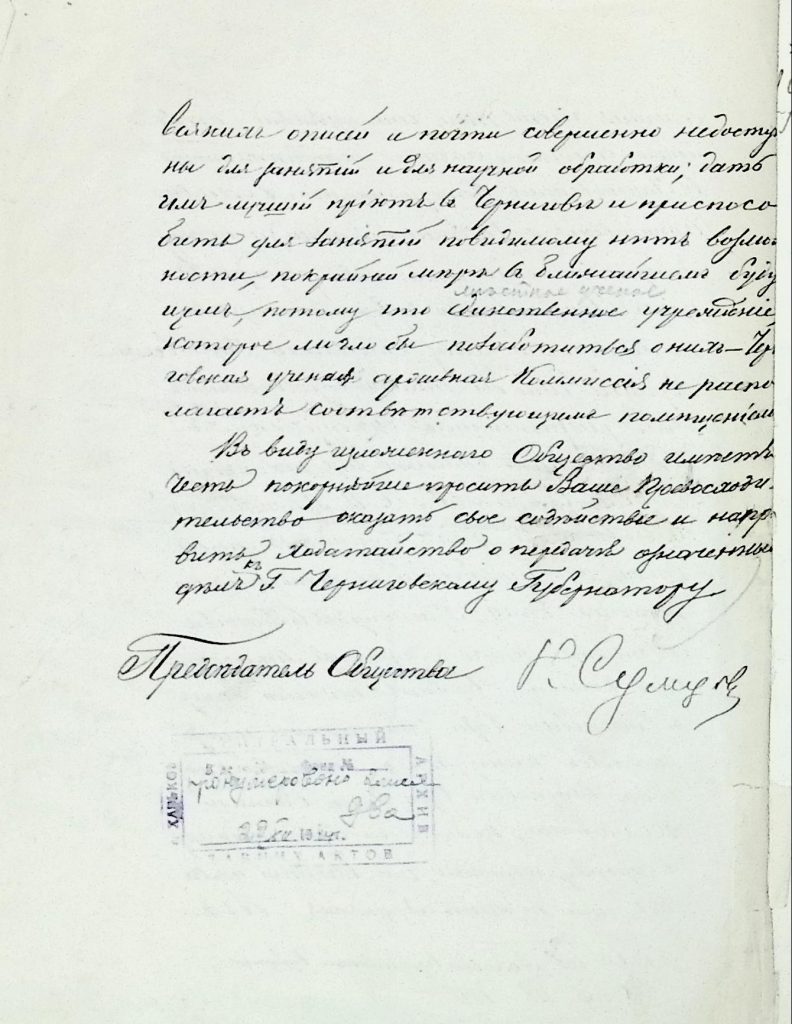 всякихъ описей и почти совершенно недоступ
ны для занятій и для научной обработки; дать
имъ лучшій пріютъ въ Черниговѣ и приспосо
бить для занятій повидимому нѣтъ возмож
ности, покрайней мѣрѣ въ ближайшемъ буду
мѣстное ученое
щемъ, потому что единственное учрежденіе
которое могло бы позаботиться о нихъ – Чер
говская ученая архивная Коммиссія не распо
лагаетъ соотвѣтствующимъ помѣщеніемъ
Въ виду изложеннаго Общество имѣетъ
честь покорнѣйше просить Ваше Превосходи-
тельство оказать свое содѣйствіе и напра
вить ходатайство о передачѣ означенныхъ
дѣлъ къ Г. Черниговскому Губернатору
Предсѣдатель Общества Н. Сумцовъ
ЦЕНТРАЛЬНЫЙ
Фонд №
пронумеровано
два
22 XII
ХАРЬКОВ
АРХИВ
АКТОВ